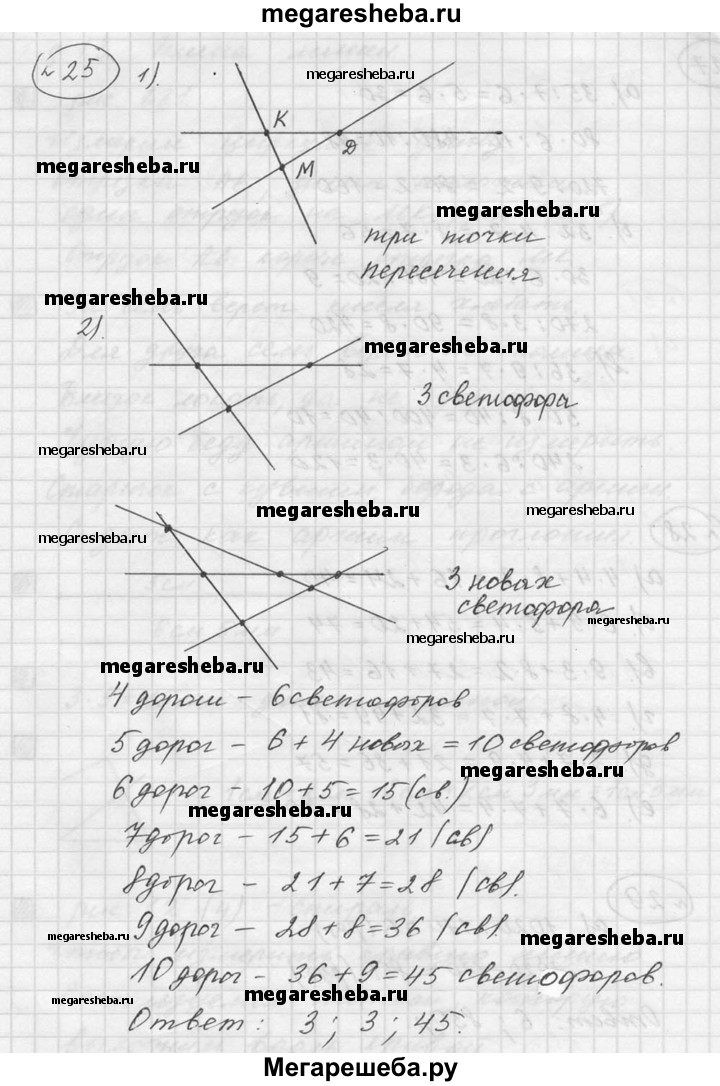 megaresheba.ru
№ 25 1).
megaresheba.ru
K
D
M
megaresheba.ru
megaresheba.ru
три точки
пересечения
megaresheba.ru
2).
megaresheba.ru
3 светофора
megaresheba.ru
megaresheba.ru
megaresheba.ru
megaresheba.ru
3 новых
светофора
megaresheba.ru
megaresheba.ru
megaresheba.ru
4 дороги – 6 светофоров
5 дорог – 6 + 4 новых = 10 светофоров
megaresheba.ru
6 дорог – 10 + 5 = 15 (св.)
megaresheba.ru
7 дорог – 15 + 6 = 21 (св)
8 дорог – 21 + 7 = 28 (св).
9 дорог – 28 + 8 = 36 (св).
megaresheba.ru
megaresheba.ru
10 дорог – 36 + 9 = 45 светофоров.
megaresheba.ru
megaresheba.ru
Ответ: 3; 3; 45.
Мегарешеба.ру